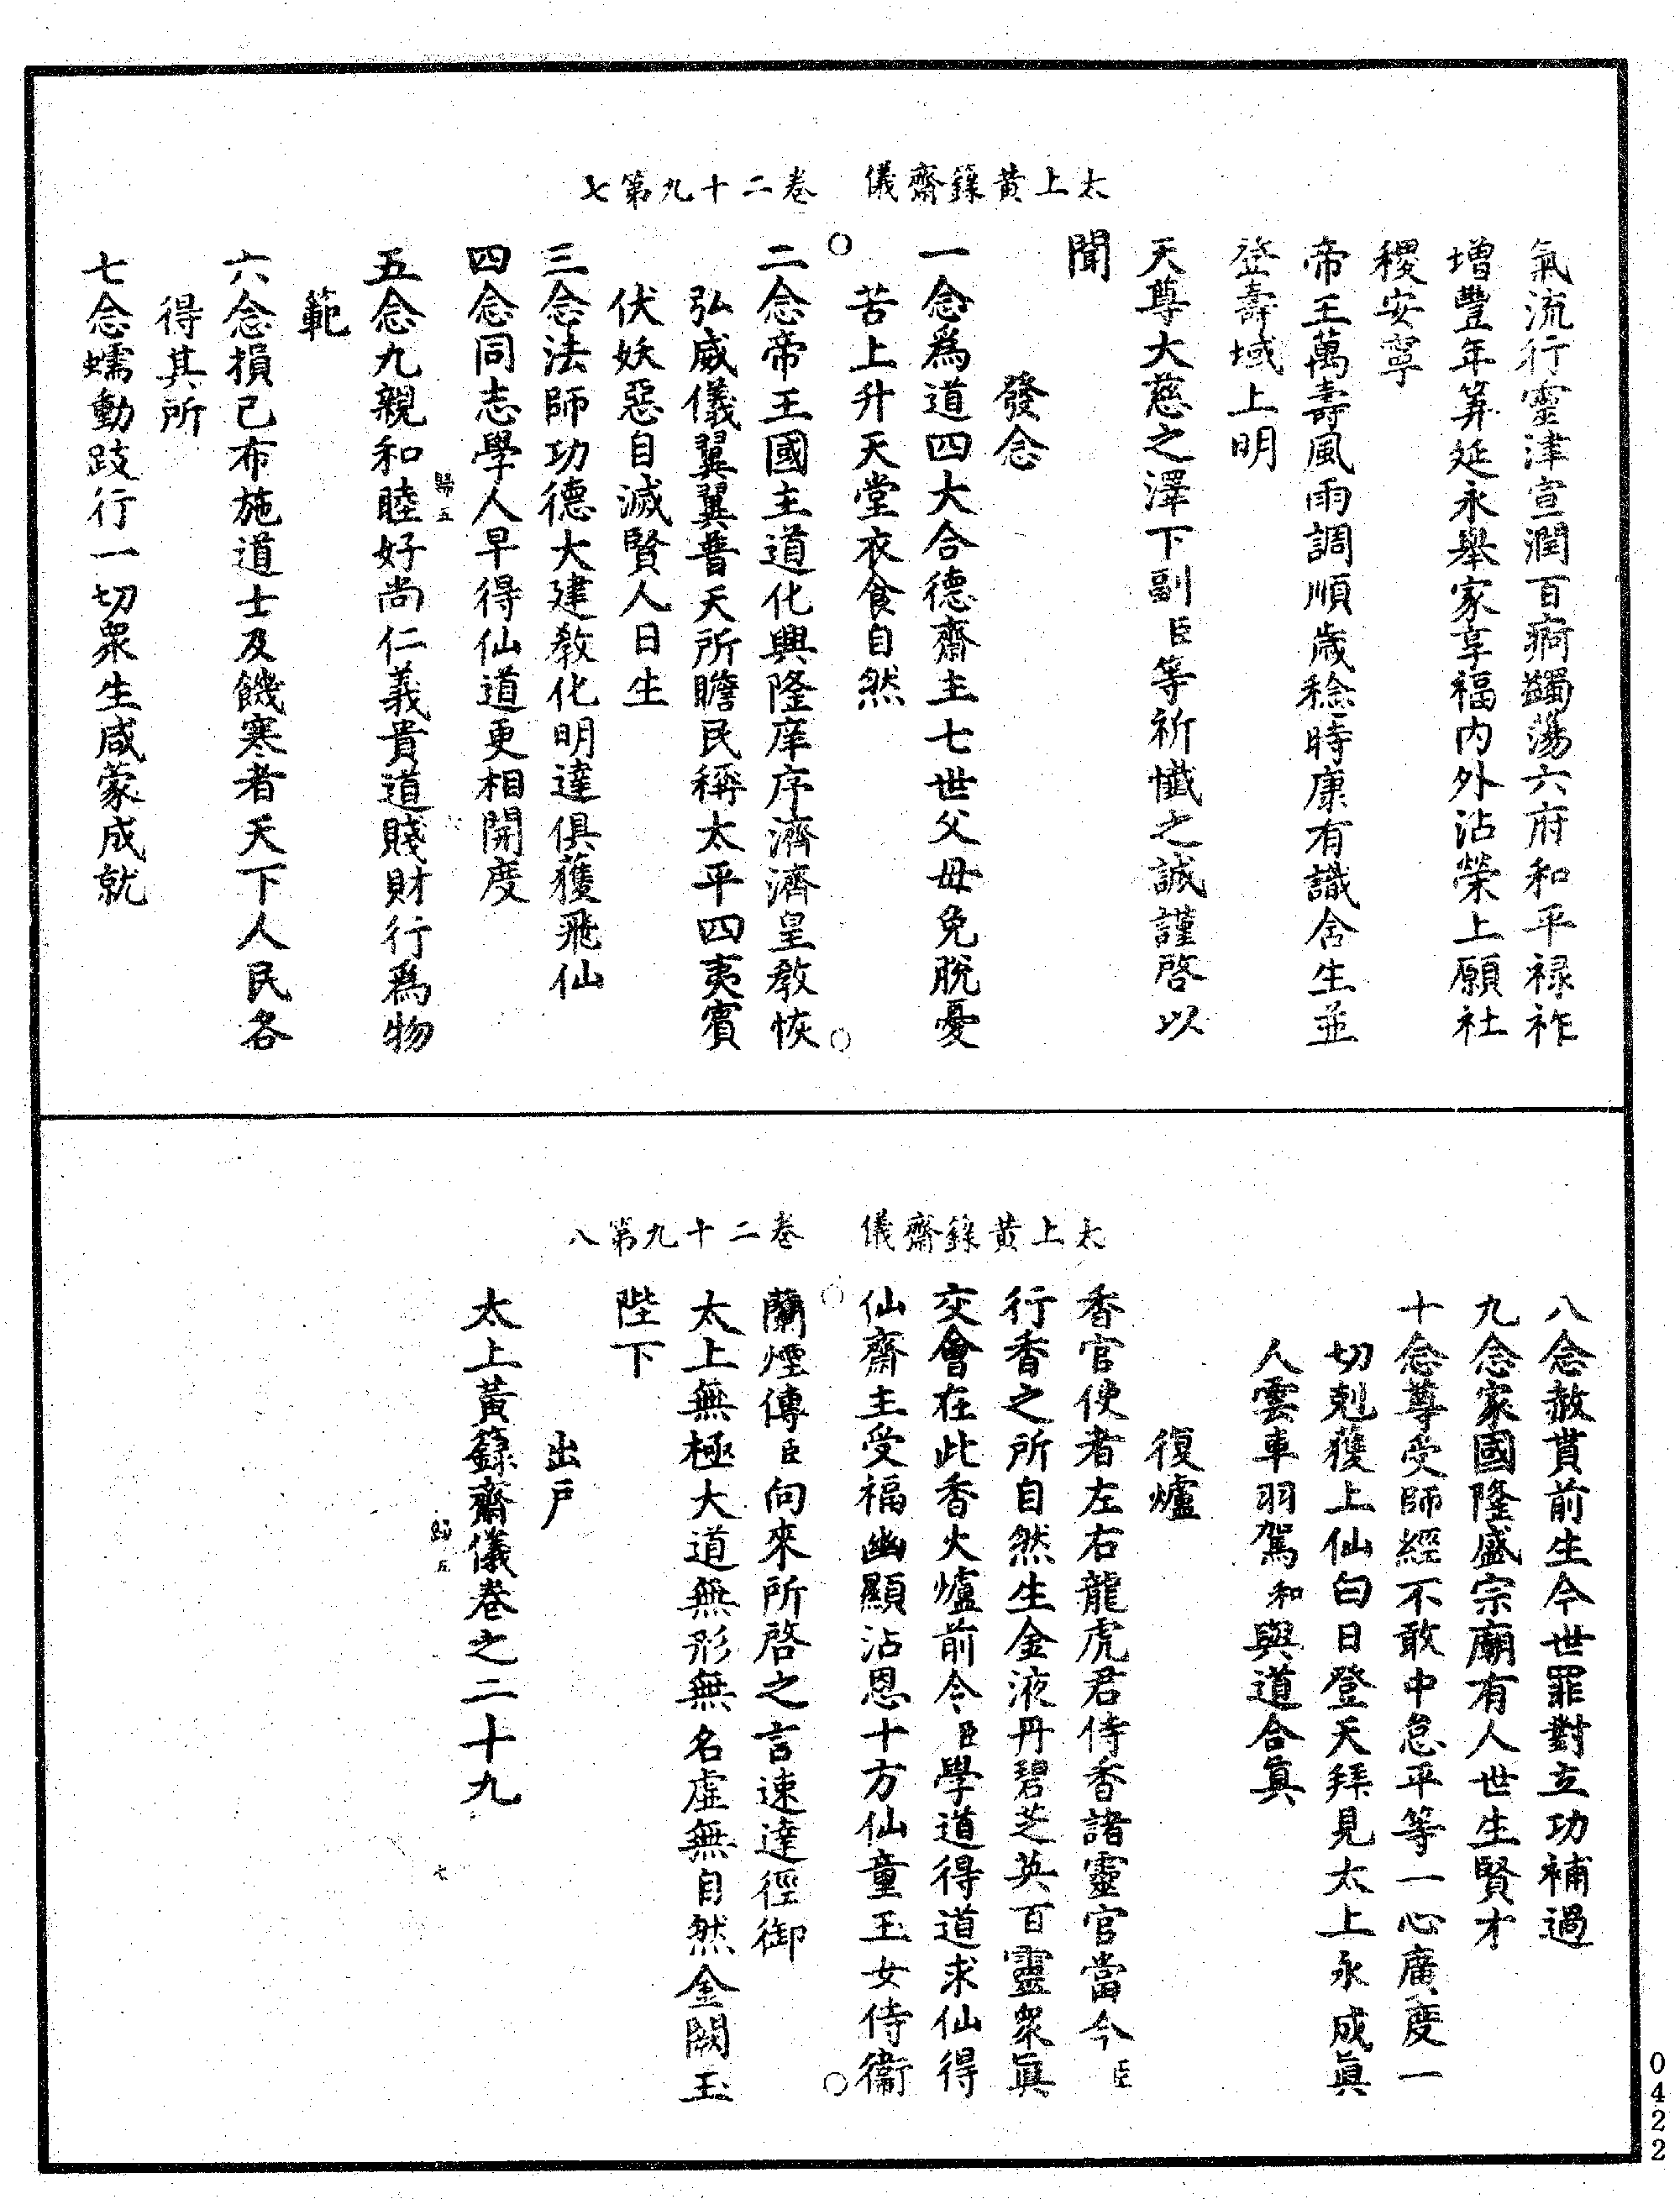 太上黃籙齋儀　卷二十九第七
氣流行靈津宣潤百痾蠲蕩六府和平祿祚
增豐年筭延永舉家享福內外沾榮上願社
稷安寧
帝王萬壽風雨調順歲稔時康有識含生並
登壽域上明
天尊大慈之澤下副臣等祈懺之誠謹啓以
聞
發念
一念爲道四大合德齋主七世父母免脫憂
苦上升天堂衣食自然
二念帝王國主道化興隆庠序濟濟皇教恢
弘威儀翼翼普天所瞻民稱太平四夷賓
伏妖惡自滅賢人日生
三念法師功德大建教化明達俱獲飛仙
四念同志學人早得仙道更相開度
歸五
五念九親和睦好尚仁義貴道賤財行爲物
範
六念損己布施道士及饑寒者天下人民各
得其所
七念蠕動跂行一切衆生咸蒙成就
太上黃籙齋儀　卷二十九第八
八念赦貰前生今世罪對立功補過
九念家國隆盛宗廟有人世生賢才
十念尊受師經不敢中怠平等一心廣度一
切剋獲上仙白日登天拜見太上永成眞
人雲車羽駕和與道合眞
復爐
香官使者左右龍虎君侍香諸靈官當今臣
行香之所自然生金液丹碧芝英百靈衆眞
交會在此香火爐前令臣學道得道求仙得
仙齋主受福幽顯沾恩十方仙童玉女侍衞
蘭煙傳臣向來所啓之言速達徑御
太上無極大道無形無名虛無自然金闕玉
陛下
出戶
太上黃籙齋儀卷之二十九
歸五
七
0422